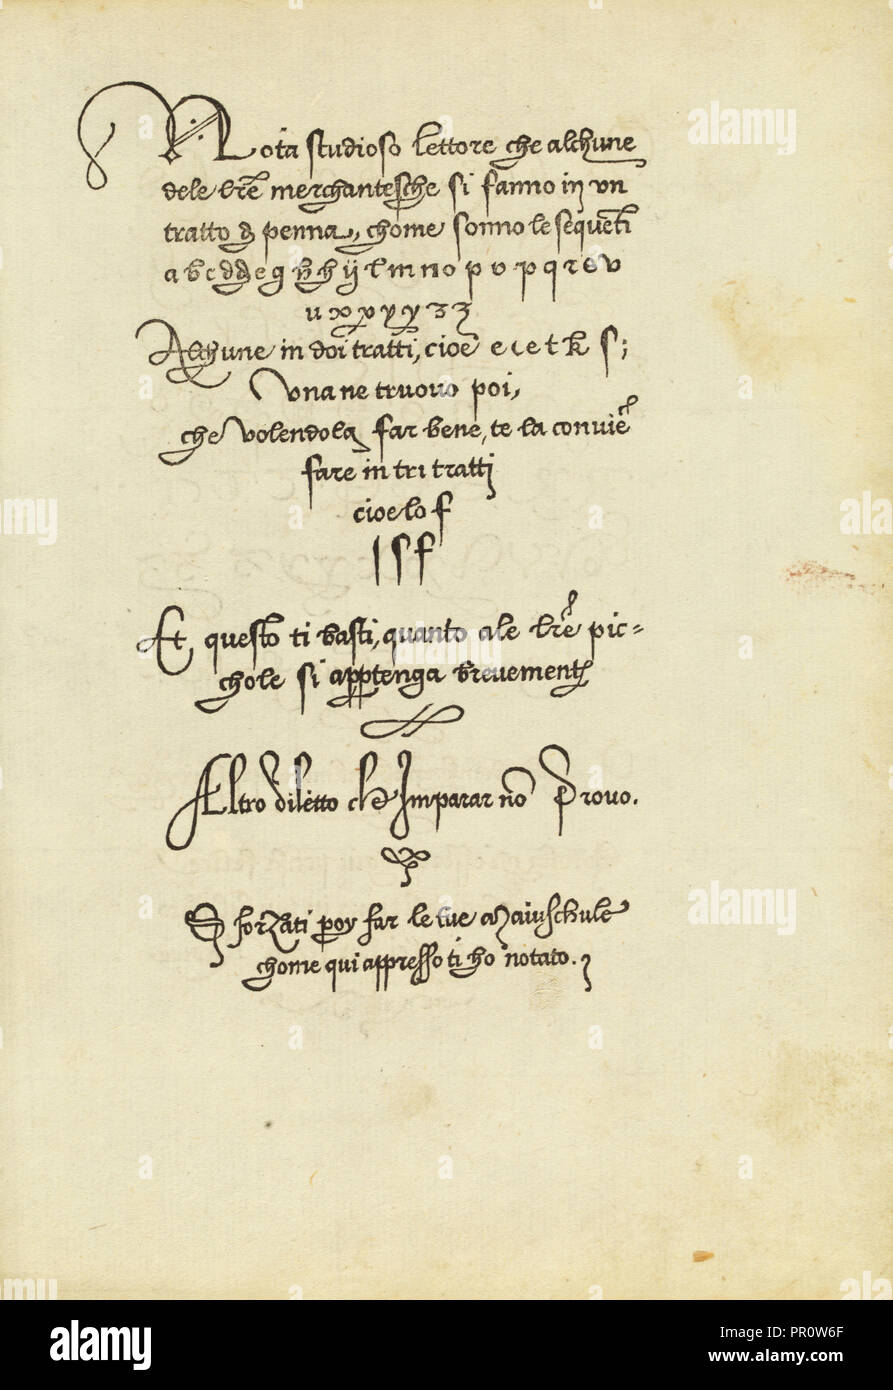 Nota studioso lettore che alchune
dele lr̃e merchantesche si fanno in un
tratto d penna, chome sonno le sequeti
a b c d d e g h h ij l m n o p v p q r e v
u x x y y z z
Alchune in doi tratti, cioe e c e t k s;
Una ne truovo poi,
che volendola far bene, te la convie
fare in tri tratti
cioe lo f
l s f
Et questo ti basti, quanto ale lr̃e pic=
chole si apptenga brevement
Altro diletto che Imparar nõ Provo.
Sforzati poy far le tue Maiuschule
chome qui appresso ti ho notato.
alamy
alamy stock photo
PR0W6F
www.alamy.com